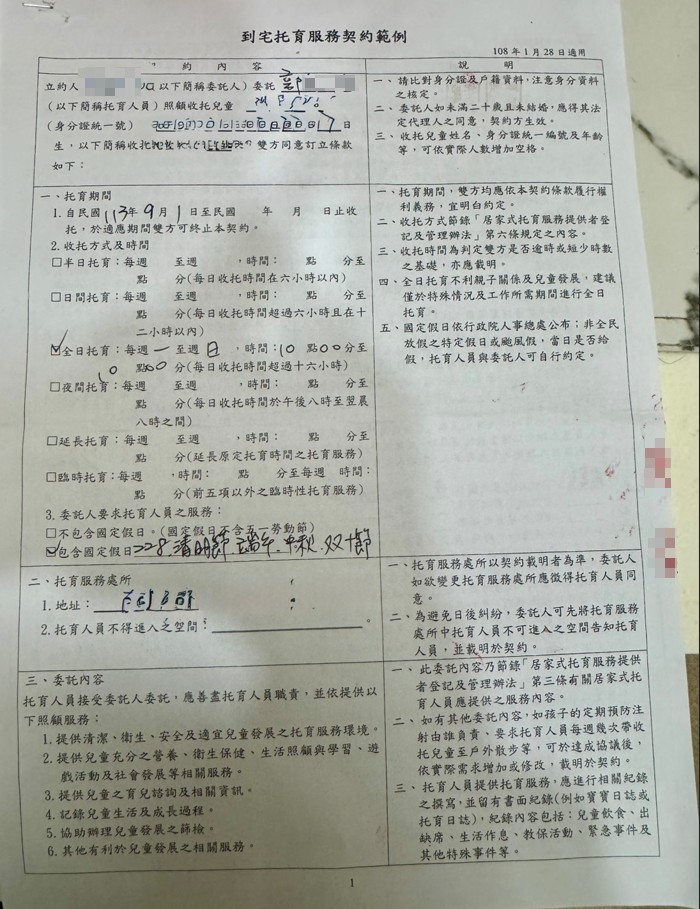 到宅托育服務契約範例
108年1月28日適用
約 內 容
說 明
立約人 以下簡稱委託人)委託
(以下簡稱托育人員)照顧收托兒童
(身分證統一號) 日
生,以下簡稱收托 雙方同意訂立條款
如下:
一、請比對身分證及戶籍資料,注意身分資料
之核定。
二、委託人如未滿二十歲且未結婚,應得其法
定代理人之同意,契約方生效。
三、收托兒童姓名、身分證統一編號及年齡
等,可依實際人數增加空格。
一、托育期間
1.自民國113年9月1日至民國 年 月 日止收
托,於適應期間雙方可終止本契約。
2.收托方式及時間
□半日托育:每週 至週 ,時間: 點 分至
點 分(每日收托時間在六小時以內)
□日間托育:每週 至週 ,時間: 點 分至
點 分(每日收托時間超過六小時且在十
二小時以內)
☑全日托育:每週一至週日,時間:10點00分至
10點00分(每日收托時間超過十六小時)
□夜間托育:每週 至週 ,時間: 點 分至
點 分(每日收托時間於午後八時至翌晨
八時之間)
□延長托育:每週 至週 ,時間: 點 分至
點 分(延長原定托育時間之托育服務)
□臨時托育:每週 ,時間: 點 分至每週 時間:
點 分(前五項以外之臨時性托育服務)
3.委託人要求托育人員之服務:
□不包含國定假日。(國定假日不含五一勞動節)
☑包含國定假日228.清明節.端午.中秋.双十節
一、托育期間,雙方均應依本契約條款履行權
利義務,宜明白約定。
二、收托方式節錄「居家式托育服務提供者登
記及管理辦法」第六條規定之內容。
三、收托時間為判定雙方是否逾時或短少時數
之基礎,亦應載明。
四、全日托育不利親子關係及兒童發展,建議
僅於特殊情況及工作所需期間進行全日
托育。
五、國定假日依行政院人事總處公布;非全民
放假之特定假日或颱風假,當日是否給
假,托育人員與委託人可自行約定。
二、托育服務處所
1.地址:
2.托育人員不得進入之空間: 。
一、托育服務處所以契約載明者為準,委託人
如欲變更托育服務處所應徵得托育人員同
意。
二、為避免日後糾紛,委託人可先將托育服務
處所中托育人員不可進入之空間告知托育
人員,並載明於契約。
三、委託內容
托育人員接受委託人委託,應善盡托育人員職責,並依提供以
下照顧服務:
1.提供清潔、衛生、安全及適宜兒童發展之托育服務環境。
2.提供兒童充分之營養、衛生保健、生活照顧與學習、遊
戲活動及社會發展等相關服務。
3.提供兒童之育兒諮詢及相關資訊。
4.記錄兒童生活及成長過程。
5.協助辦理兒童發展之篩檢。
6.其他有利於兒童發展之相關服務。
一、此委託內容乃節錄「居家式托育服務提供
者登記及管理辦法」第三條有關居家式托
育人員應提供之服務內容。
二、如有其他委託內容,如孩子的定期預防注
射由誰負責、要求托育人員每週幾次帶收
托兒童至戶外散步等,可於達成協議後,
依實際需求增加或修改,載明於契約。
三、托育人員提供托育服務,應進行相關紀錄
之撰寫,並留有書面紀錄(例如寶寶日誌或
托育日誌),紀錄內容包括:兒童飲食、出
缺席、生活作息、教保活動、緊急事件及
其他特殊事件等。
1